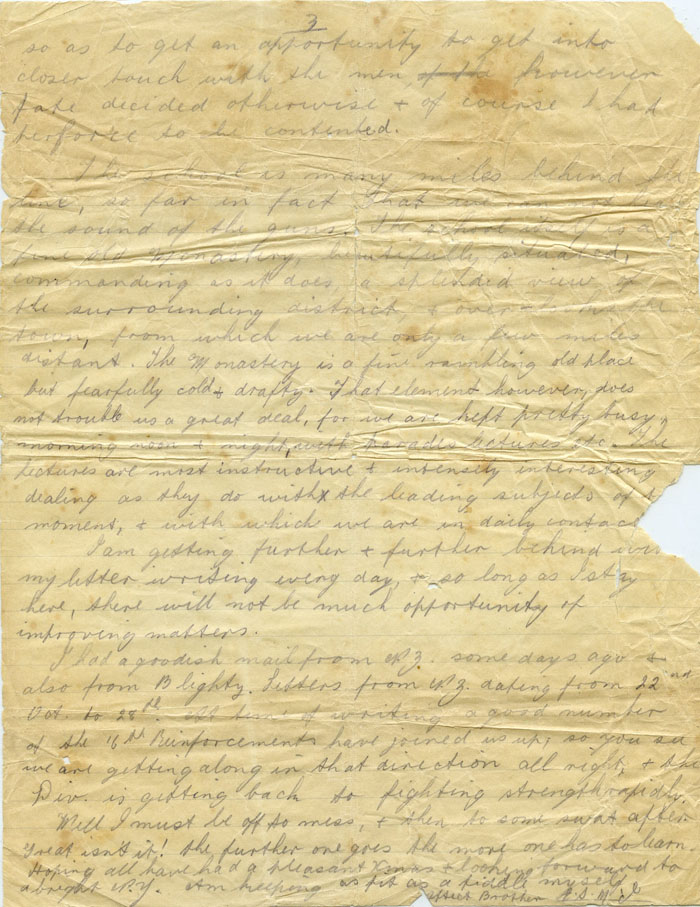 3
so as to get an opportunity to get into
closer touch with the men, of the however
fate decided otherwise & of course I had
perforce to be contented.
The school is many miles behind the
line, so far in fact that we can not hear
the sound of the guns. The school itself is a
fine old Monastery, beautifully situated,
commanding as it does, a splendid view of
the surrounding district, & over-looks the
town, from which we are only a few miles
distant. The Monastery is a fine rambling old place
but fearfully cold & drafty. That element however, does
not trouble us a great deal, for we are kept pretty busy,
morning noon & night, with parades lectures etc. The
lectures are most instructive & intensely interesting
dealing as they do with the leading subjects of t
moment, & with which we are in daily contac
I am getting further & further behind wi
my letter writing every day, & so long as I stay
here, there will not be much opportunity of
improving matters.
I had a goodish mail from N.Z. some days ago &
also from Blighty. Letters from N.Z. dating from 22nd
Oct. to 28th. At time of writing a good number
of the 16th Reinforcements have joined us up, so you see
we are getting along in that direction all right, & the
Div. is getting back to fighting strength rapidly.
Well I must be off to mess, & then to some swat after.
Great isn't it! the further one goes the more one has to learn.
Hoping all have had a pleasant Xmas & looking forward to
a bright N.Y. Am keeping as fit as a fiddle myself
Brother